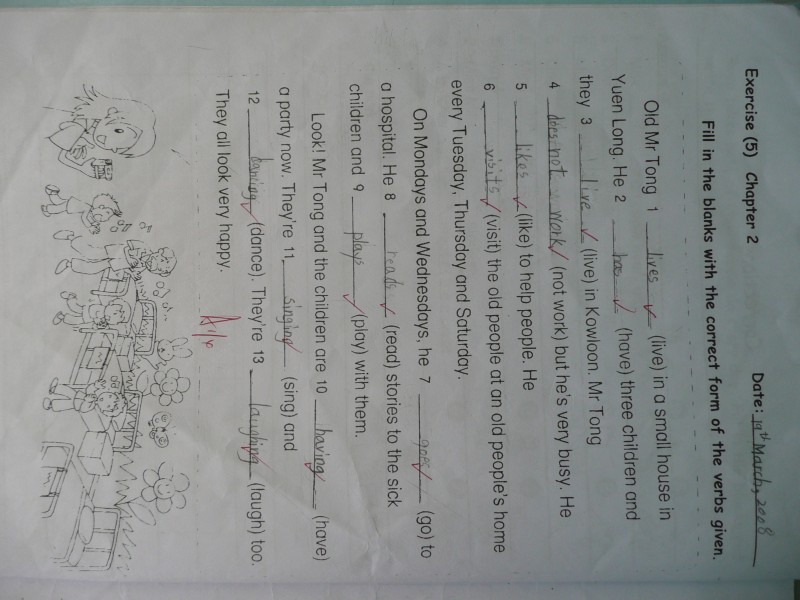 Exercise (5) Chapter 2 Date: 19th March, 2008
Fill in the blanks with the correct form of the verbs given.
Old Mr Tong 1 lives (live) in a small house in
Yuen Long. He 2 has (have) three children and
they 3 live (live) in Kowloon. Mr Tong
4 does not work (not work) but he's very busy. He
5 likes (like) to help people. He
6 visits (visit) the old people at an old people's home
every Tuesday, Thursday and Saturday.
On Mondays and Wednesdays, he 7 goes (go) to
a hospital. He 8 reads (read) stories to the sick
children and 9 plays (play) with them.
Look! Mr Tong and the children are 10 having (have)
a party now. They're 11 singing (sing) and
12 dancing (dance). They're 13 laughing (laugh) too.
They all look very happy.